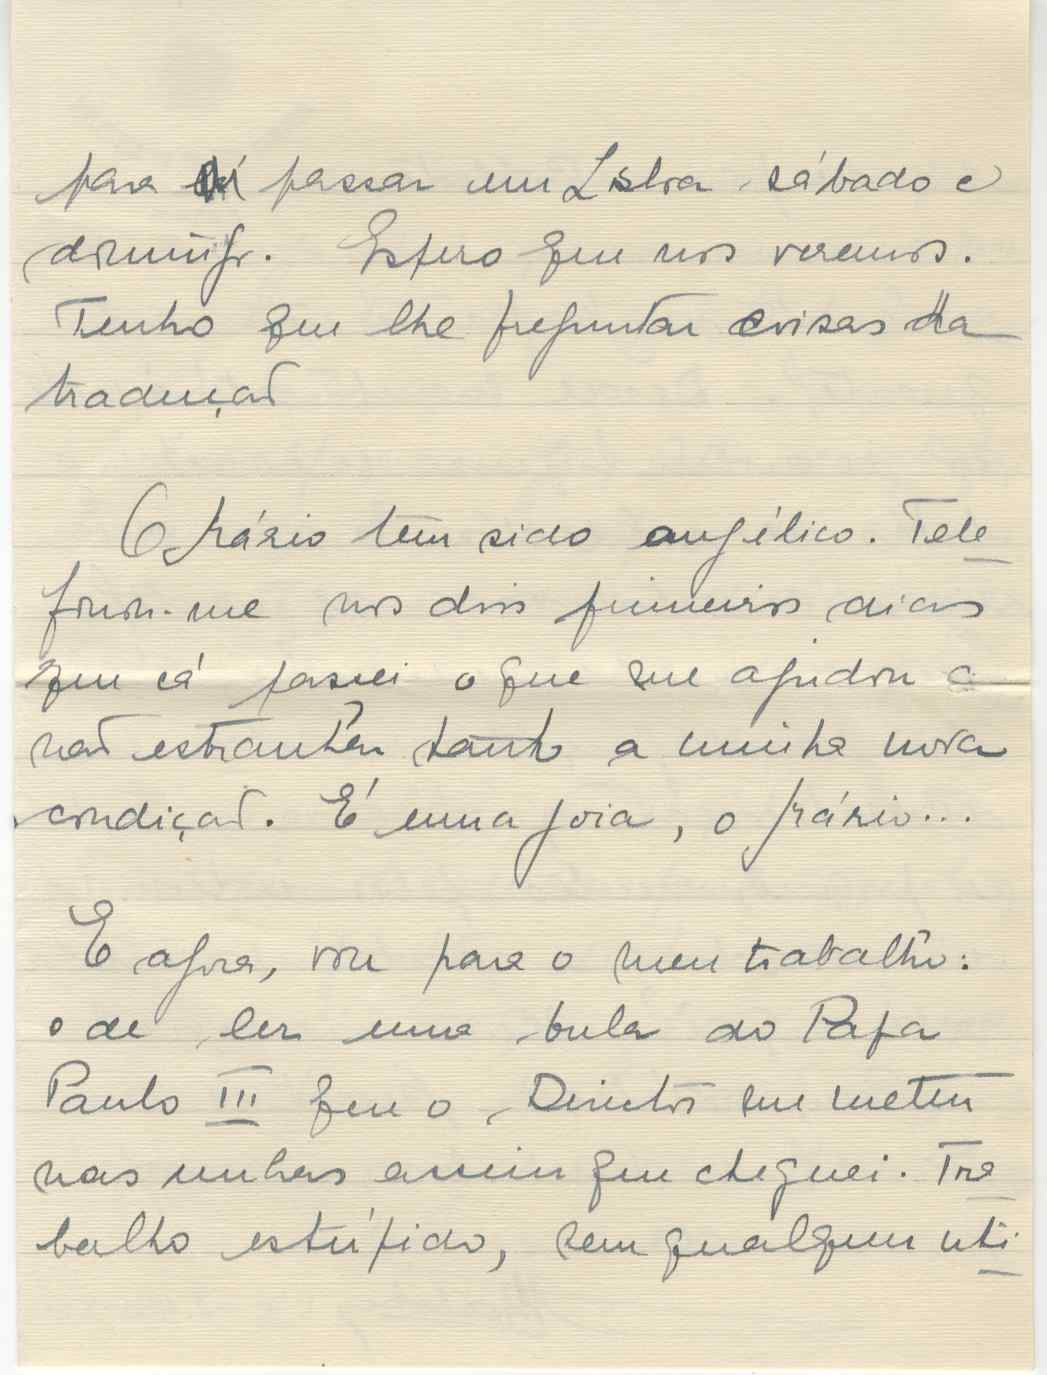 para passar em Lisboa sábado e
domingo. Espero que nos veremos.
Tenho que lhe preguntar coisas da
tradução
O Mário tem sido angélico. Tele
fonou-me nos dois primeiros dias
que cá passei o que me ajudou a
não estranhar tanto a minha nova
condição. É uma joia, o Mário...
E agora, vou para o meu trabalho:
o de ler uma bula do Papa
Paulo III que o Director me meteu
nas unhas assim que cheguei. Tra
balho estúpido, sem qualquer uti